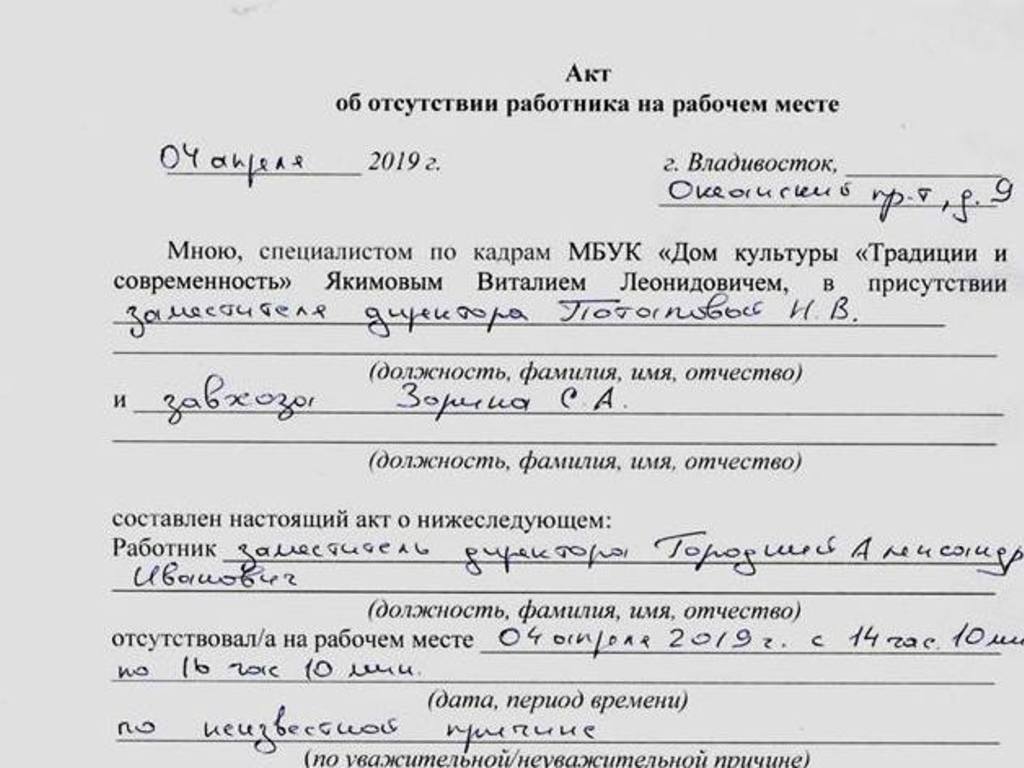 Акт
об отсутствии работника на рабочем месте
04 апреля 2019 г. г. Владивосток,
Океанский пр-т, д. 9
Мною, специалистом по кадрам МБУК «Дом культуры «Традиции и
современность» Якимовым Виталием Леонидовичем, в присутствии
заместителя директора Потаповой Н. В.
(должность, фамилия, имя, отчество)
и завхоза Зорина С. А.
(должность, фамилия, имя, отчество)
составлен настоящий акт о нижеследующем:
Работник заместитель директора Городний Александр
Иванович
(должность, фамилия, имя, отчество)
отсутствовал/а на рабочем месте 04 апреля 2019 г. с 14 час. 10 мин
по 16 час 10 мин.
(дата, период времени)
по неизвестной причине
(по уважительной/неуважительной причине)